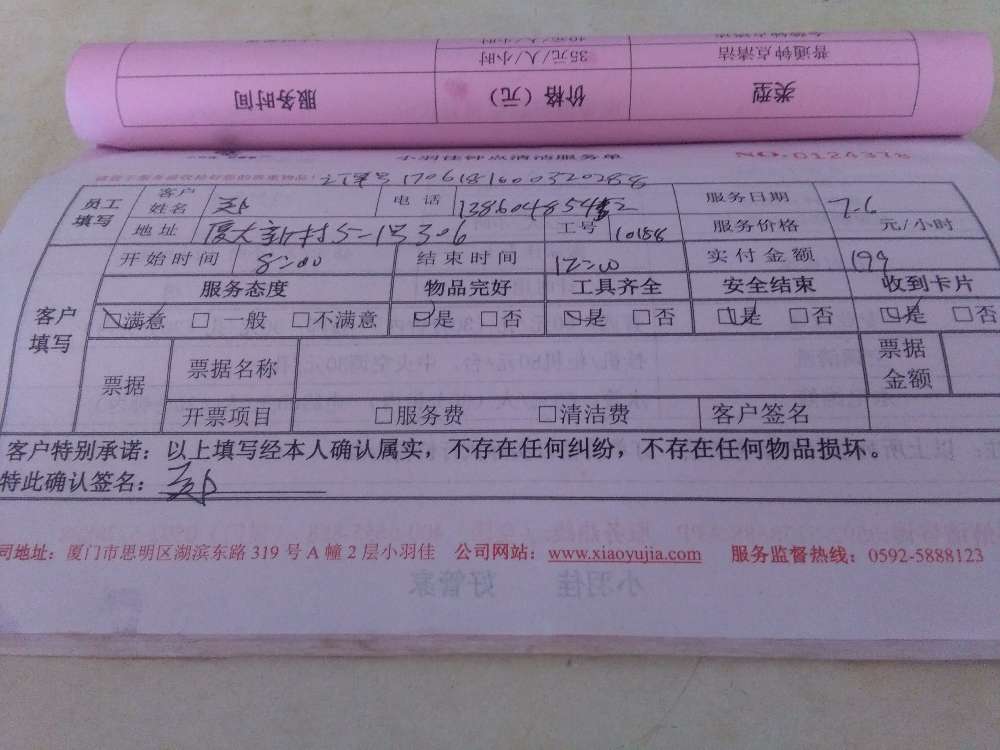 普通钟点清洁 35元/人/小时
类型 价格（元） 服务时间
小羽佳钟点清洁服务单 NO.0124378
170618160032028８
员工填写 客户姓名 郑 电话 服务日期 7.6
地址 厦大新村5-13306 工号 10188 服务价格 元/小时
客户填写 开始时间 8:00 结束时间 12:00 实付金额 199
服务态度 物品完好 工具齐全 安全结束 收到卡片
☑满意 □一般 □不满意 ☑是 □否 ☑是 □否 ☑是 □否 ☑是 □否
票据 票据名称 票据金额
开票项目 □服务费 □清洁费 客户签名
客户特别承诺：以上填写经本人确认属实，不存在任何纠纷，不存在任何物品损坏。
特此确认签名：郑
司地址：厦门市思明区湖滨东路 319 号 A 幢 2 层小羽佳 公司网站：www.xiaoyujia.com 服务监督热线：0592-5888123
小羽佳 好管家